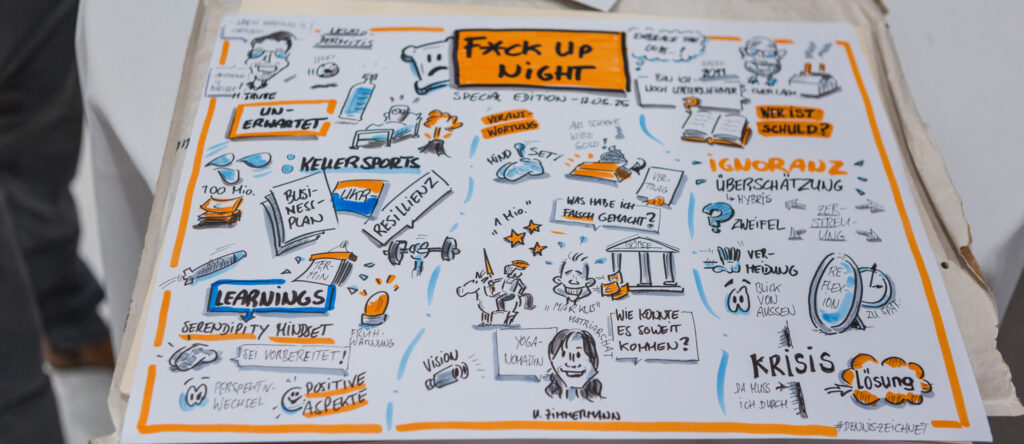 F*CK UP
NIGHT
SPECIAL EDITION - 12.05.26
UN-
ERWARTET
KELLERSPORTS
100 Mio.
BUSI
NESS-
PLAN
UKR
RESILLIENZ
TER-
MIN
LEARNINGS
SERENDIPITY MINDSET
SEI VORBEREITET!
FRÜH-
WARNUNG
PERSPEKTIV-
WECHSEL
POSITIVE
ASPEKTE
VERANT-
WORTUNG
MINDSET!
AUS SCHEISSE
WIRD
GOLD!
VER-
TRAG
WAS HABE ICH
FALSCH GEMACHT?
"1 Mio."
BÖRSE
"MARKUS"
MATRIARCHAT
YOGA-
NOMADIN
WIE KONNTE
ES SOWEIT
KOMMEN?
VISION
U. ZIMMERMANN
BIN ICH
NOCH UNTERNEHMER?
2011
WER IST
SCHULD?
IGNORANZ
ÜBERSCHÄTZUNG
HYBRIS
ZWEIFEL
ZER-
STREU-
UNG
VER-
MEIDUNG
BLICK
VON
AUSSEN
RE-
FLEX-
ION
ZU SPÄT
KRISIS
DA MUSS
ICH DURCH
LÖSUNG
#DENNISZEICHNET